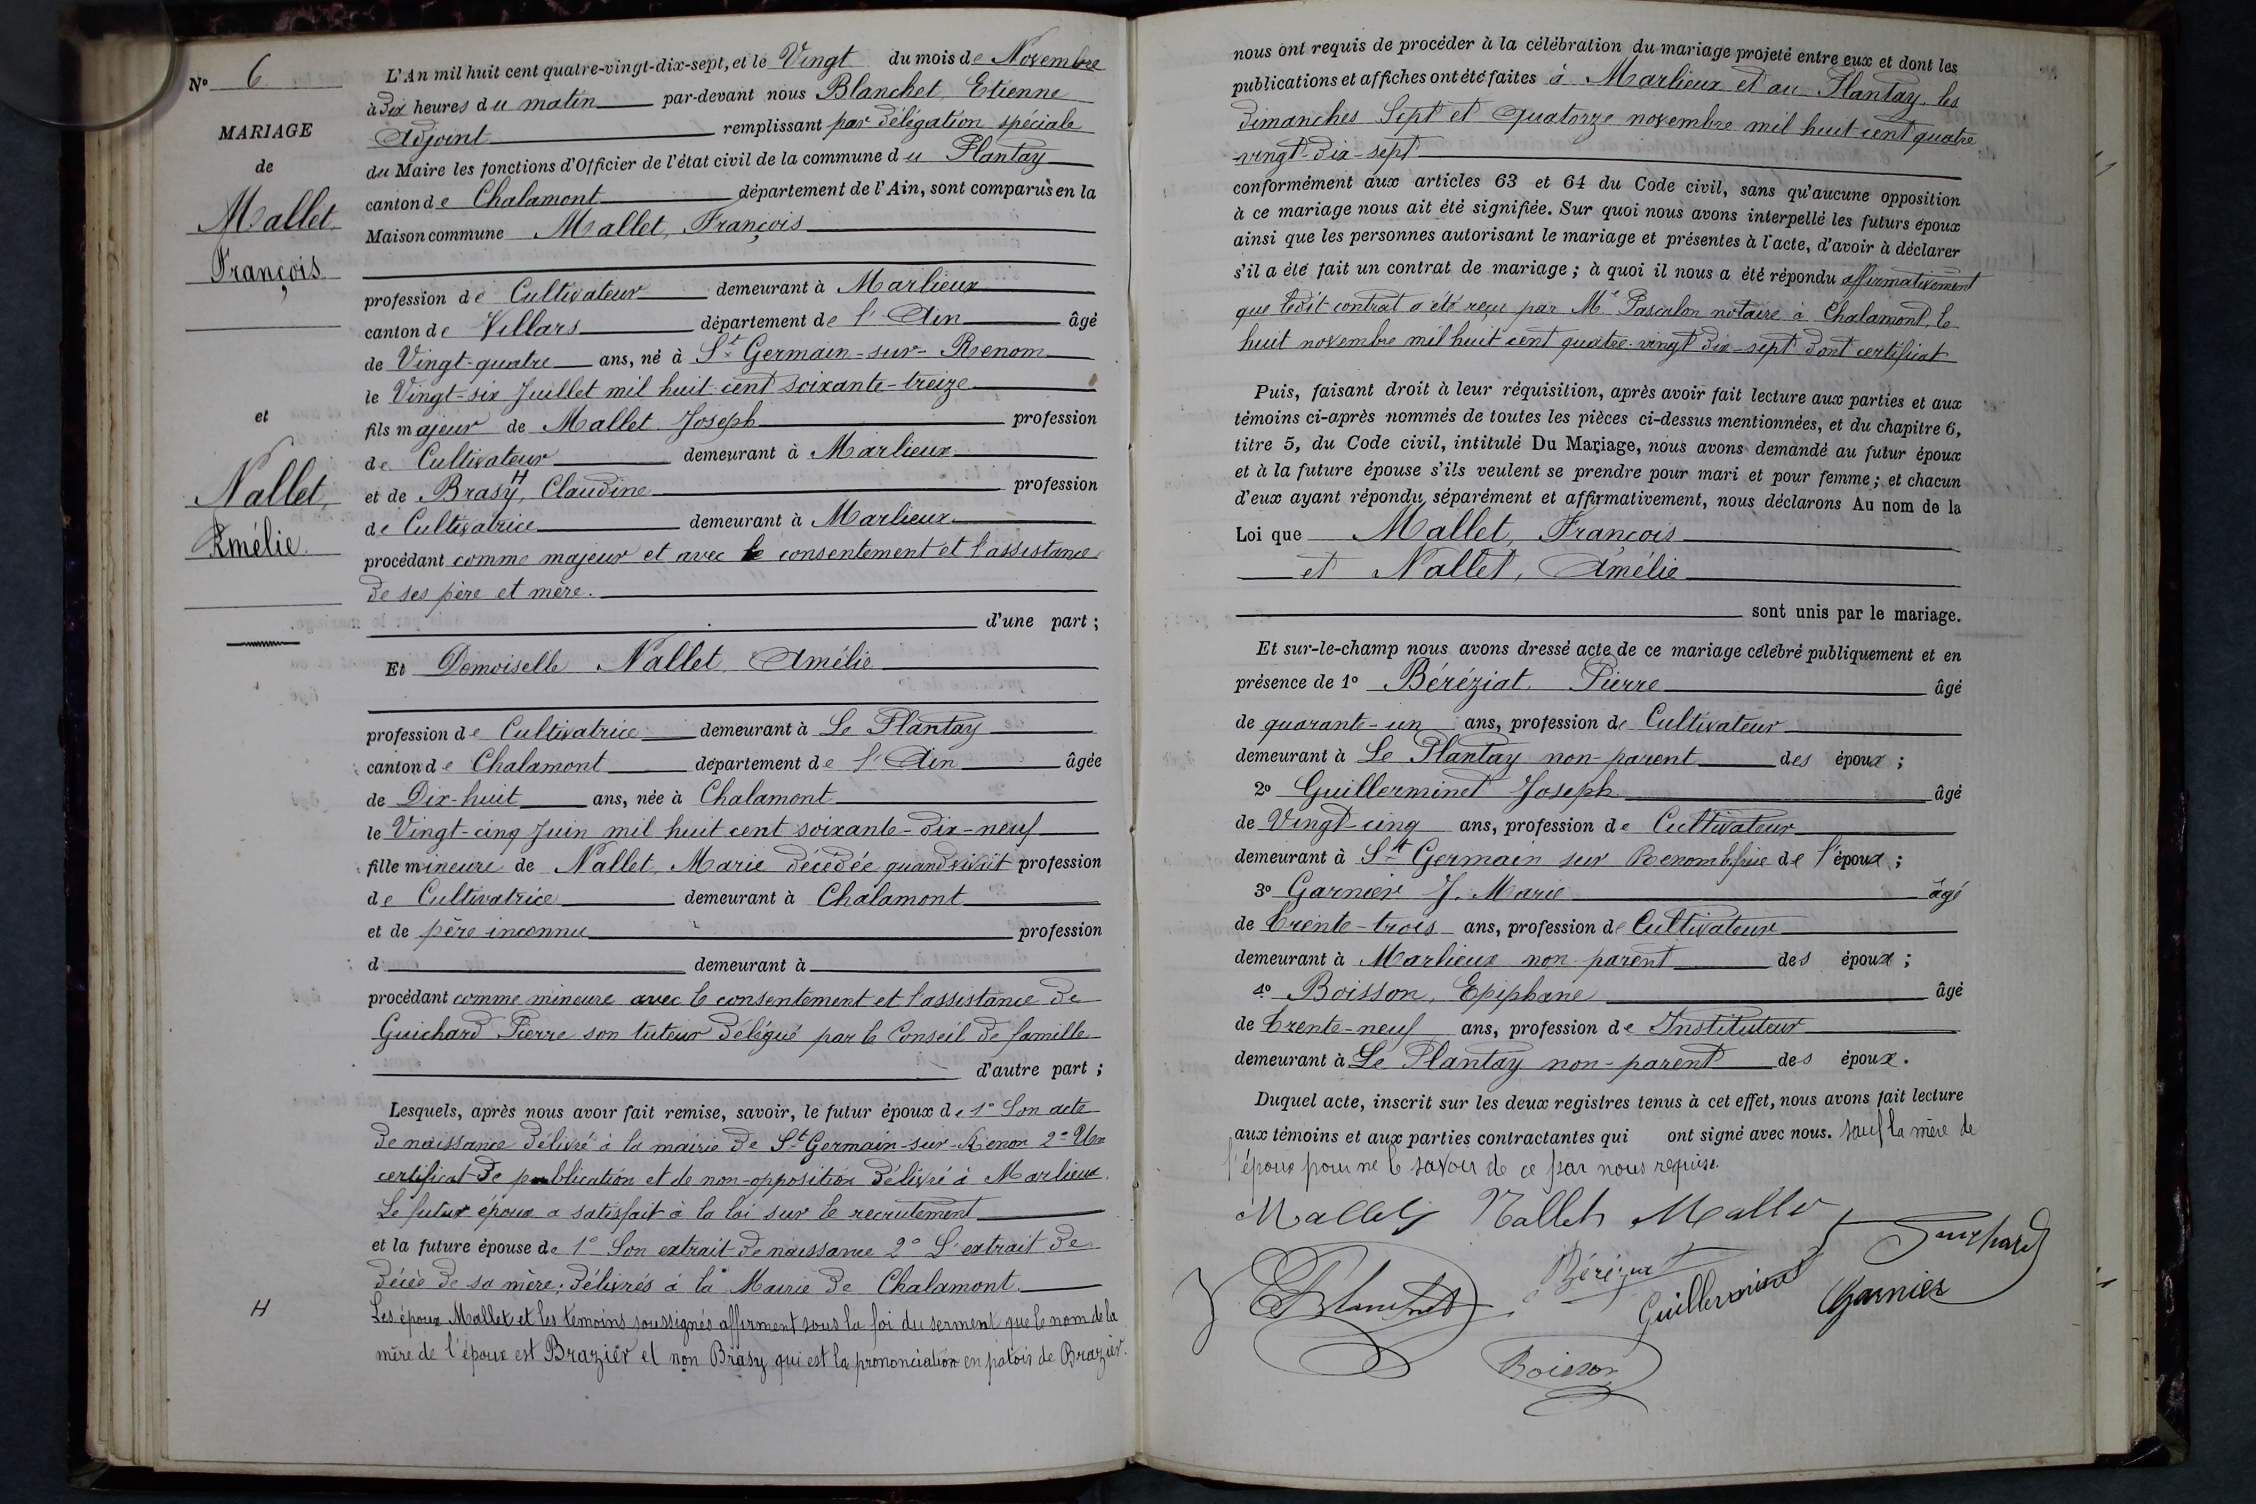 N° 6
MARIAGE
de
Mallet,
François
et
Nallet,
Amélie
H
L'An mil huit cent quatre-vingt-dix-sept, et le Vingt du mois de Novembre
à Dix heures du matin par-devant nous Blanchet, Etienne
Adjoint remplissant par délégation spéciale
du Maire les fonctions d'Officier de l'état civil de la commune du Plantay
canton de Chalamont département de l'Ain, sont comparus en la
Maison commune Mallet, François
profession de Cultivateur demeurant à Marlieux
canton de Villars département de l'Ain âgé
de Vingt-quatre ans, né à St Germain-sur-Renom
le Vingt-six Juillet mil huit cent soixante-treize
fils majeur de Mallet Joseph profession
de Cultivateur demeurant à Marlieux
et de Brasy H, Claudine profession
de Cultivatrice demeurant à Marlieux
procédant comme majeur et avec le consentement et l'assistance
de ses père et mère.
d'une part ;
Et Demoiselle Nallet, Amélie
profession de Cultivatrice demeurant à Le Plantay
canton de Chalamont département de l'Ain âgée
de Dix-huit ans, née à Chalamont
le Vingt-cinq Juin mil huit cent soixante-dix-neuf
fille mineure de Nallet, Marie décédée quand vivait profession
de Cultivatrice demeurant à Chalamont
et de père inconnu profession
d demeurant à
procédant comme mineure avec le consentement et l'assistance de
Guichard Pierre son tuteur délégué par le Conseil de famille
d'autre part ;
Lesquels, après nous avoir fait remise, savoir, le futur époux de 1° Son acte
de naissance délivré à la mairie de St Germain-sur-Renon 2° Un
certificat de publication et de non-opposition délivré à Marlieux.
Le futur époux a satisfait à la loi sur le recrutement
et la future épouse de 1° Son extrait de naissance 2° L'extrait de
décès de sa mère, délivrés à la Mairie de Chalamont.
Les époux Mallet et les témoins soussignés affirment sous la foi du serment que le nom de la
mère de l'époux est Brazier et non Brasy qui est la prononciation en patois de Brazier.
nous ont requis de procéder à la célébration du mariage projeté entre eux et dont les
publications et affiches ont été faites à Marlieux et au Plantay, les
dimanches Sept et quatorze novembre mil huit cent quatre
-vingt-dix-sept
conformément aux articles 63 et 64 du Code civil, sans qu'aucune opposition
à ce mariage nous ait été signifiée. Sur quoi nous avons interpellé les futurs époux
ainsi que les personnes autorisant le mariage et présentes à l'acte, d'avoir à déclarer
s'il a été fait un contrat de mariage ; à quoi il nous a été répondu affirmativement
que ledit contrat a été reçu par Me Pascalon notaire à Chalamont, le
huit novembre mil huit cent quatre-vingt-dix-sept dont certificat
Puis, faisant droit à leur réquisition, après avoir fait lecture aux parties et aux
témoins ci-après nommés de toutes les pièces ci-dessus mentionnées, et du chapitre 6,
titre 5, du Code civil, intitulé Du Mariage, nous avons demandé au futur époux
et à la future épouse s'ils veulent se prendre pour mari et pour femme ; et chacun
d'eux ayant répondu séparément et affirmativement, nous déclarons Au nom de la
Loi que Mallet, François
et Nallet, Amélie
sont unis par le mariage.
Et sur-le-champ nous avons dressé acte de ce mariage célébré publiquement et en
présence de 1° Béréziat Pierre âgé
de quarante-un ans, profession de Cultivateur
demeurant à Le Plantay non-parent des époux ;
2° Guillerminet Joseph âgé
de Vingt-cinq ans, profession de Cultivateur
demeurant à St Germain sur Renom de l'époux ;
3° Garnier J. Marie âgé
de trente-trois ans, profession de Cultivateur
demeurant à Marlieux non parent des époux ;
4° Boisson, Epiphane âgé
de trente-neuf ans, profession de Instituteur
demeurant à Le Plantay non-parent des époux.
Duquel acte, inscrit sur les deux registres tenus à cet effet, nous avons fait lecture
aux témoins et aux parties contractantes qui ont signé avec nous. sauf la mère de
l'époux pour ne le savoir de ce par nous requise.
Mallet Nallet Mallet
Guichard
Blanchet Béréziat Guillerminet Garnier
Boisson